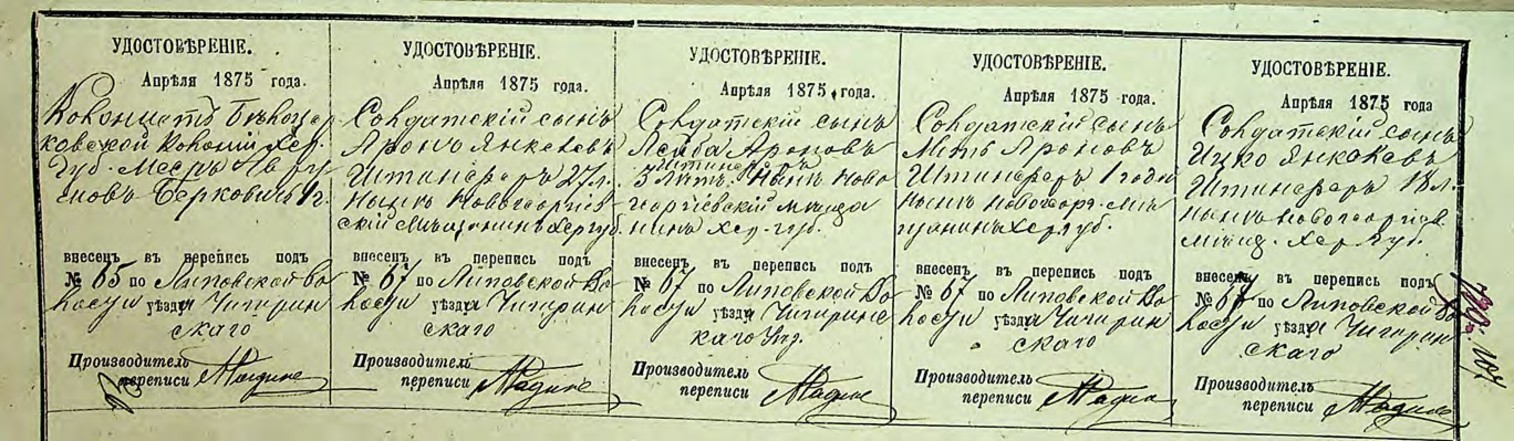 УДОСТОВѢРЕНІЕ.
Апрѣля 1875 года.
Колонистъ Бѣлоцер
ковской Колоніи Хер.
Губ. Мееръ
Берковичъ
внесенъ въ перепись подъ
№ 65 по Липовской Во
лости уѣзда Чигирин
скаго
Производитель
переписи
УДОСТОВѢРЕНІЕ.
Апрѣля 1875 года.
Солдатскій сынъ
Аронъ Янкелевъ
Штинеферъ 27 л.
нынѣ Новогеоргіев
скій Мѣщанинъ Хер губ.
внесенъ въ перепись подъ
№ 67 по Липовской Во
лости уѣзда Чигирин
скаго
Производитель
переписи
УДОСТОВѢРЕНІЕ.
Апрѣля 1875 года.
Солдатскій сынъ
Лейба Ароновъ
Штинеферъ
3 лѣтъ. Нынѣ Ново
георгіевскій мѣща
нинъ Хер. губ.
внесенъ въ перепись подъ
№ 67 по Липовской Во
лости уѣзда Чигиринс
каго
Производитель
переписи
УДОСТОВѢРЕНІЕ.
Апрѣля 1875 года.
Солдатскій сынъ
Ароновъ
Штинеферъ 1 года
нынѣ новогеорг. мѣ
щанинъ Хер губ.
внесенъ въ перепись подъ
№ 67 по Липовской Во
лости уѣзда Чигирин
скаго
Производитель
переписи
УДОСТОВѢРЕНІЕ.
Апрѣля 1875 года
Солдатскій сынъ
Ицко Янкелевъ
Штинеферъ 18 л.
нынѣ новогеоргіев.
мѣщ. Хер. Губ.
внесенъ въ перепись подъ
№ 67 по Липовской Во
лости уѣзда Чигирин
скаго
Производитель
переписи